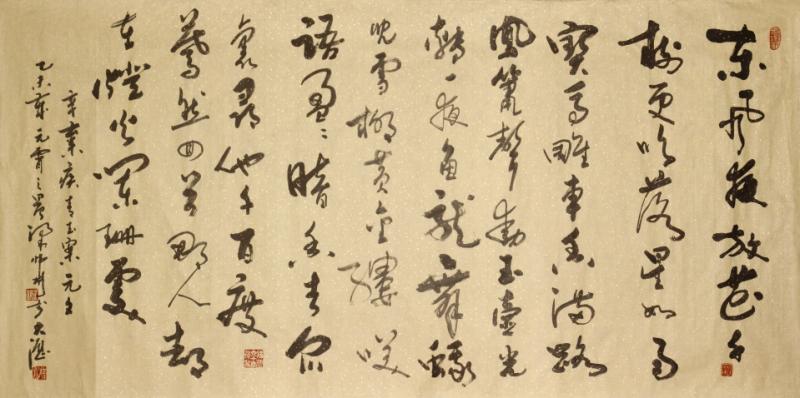 東风夜放花千
樹更吹落星如雨
寶馬雕車香滿路
鳳簫聲動玉壺光
轉一夜魚龍舞蛾
兒雪柳黄金縷笑
語盈〻暗香去众
裏尋他千百度
驀然回首那人却
在燈火闌珊處
辛棄疾青玉案元夕
乙未年元宵之